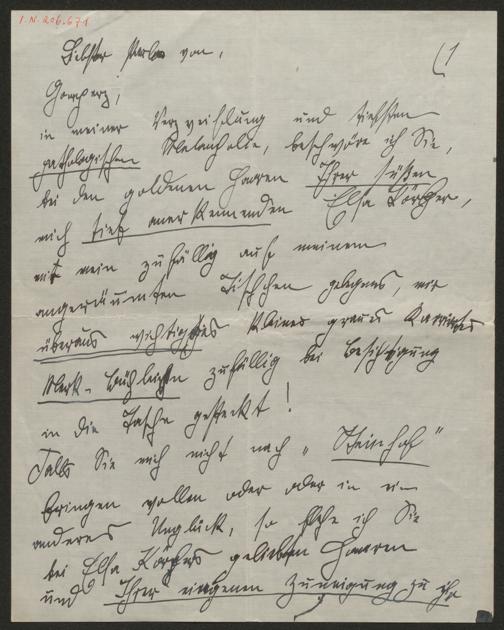 I.N. 206.671
(1
Liebster Marko von,
Gomperz,
in meiner Verzweiflung und tiefsten
pathologischen Melancholie, beschwöre ich Sie,
bei den goldenen Haaren Ihrer süßen
mich tief anerkennenden Elsa Körber,
mir mein zufällig auf meinem
angeräumten Tischchen gelegenes, mir
überaus wichtiges kleines graues karriertes
Merk-Büchlein zufällig bei Besichtigung
in die Tasche gesteckt!
Falls Sie mich nicht nach „Steinhof"
bringen wollen oder oder in ein
anderes Unglück, so flehe ich Sie
bei Elsa Körbers geliebten Haaren
und Ihrer eingenen Zuneigung zu ihr